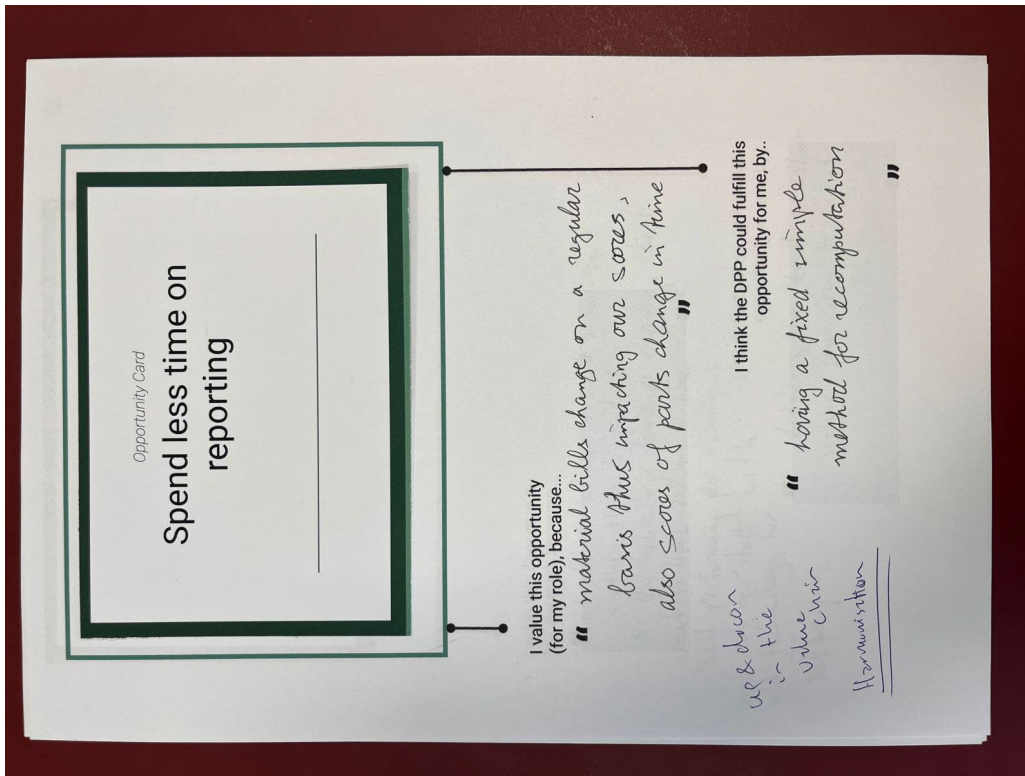 Opportunity Card
Spend less time on
reporting
I value this opportunity
(for my role), because...
“ material bills change on a regular
basis thus impacting our scores,
also scores of parts change in time
”
I think the DPP could fulfill this
opportunity for me, by..
“ having a fixed simple
method for recomputation
”
up & down
in the
value chain
Harmonisation